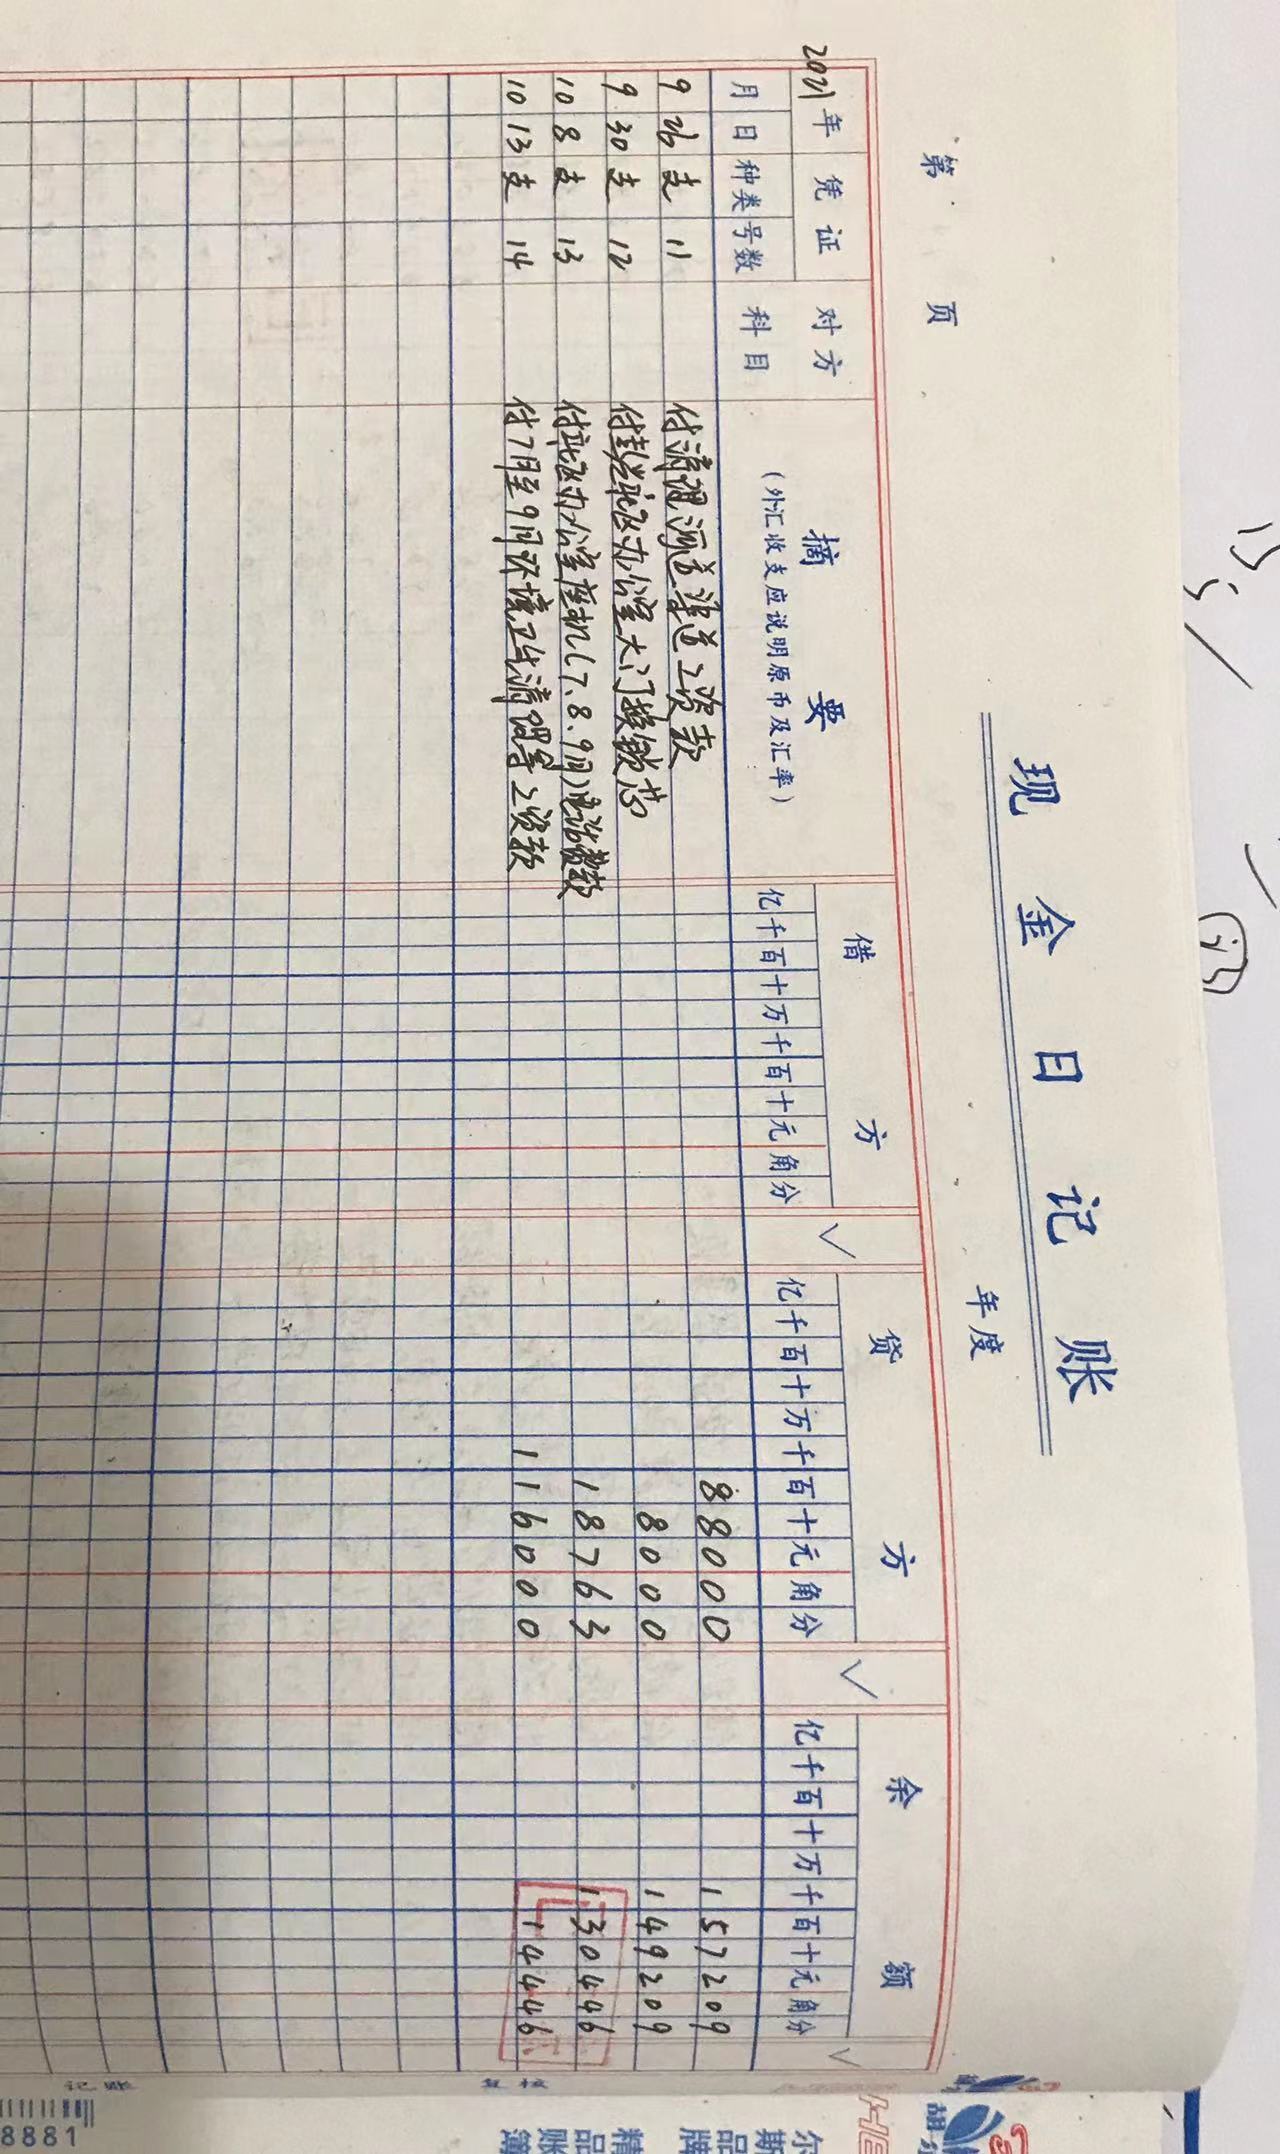 现金日记账
年度
第 页
2021年 凭证 对方 摘要 借方 √ 贷方 √ 余额 √
月 日 种类 号数 科目 (外汇收支应说明原币及汇率) 亿千百十万千百十元角分 亿千百十万千百十元角分 亿千百十万千百十元角分
9 26 支 11 付清理河道渠道工资款 88000 157209
9 30 支 12 付 社区办公室大门换锁芯 8000 149209
10 8 支 13 付社区办公室座机(7.8.9月)电话费款 18763 130446
10 13 支 14 付7月至9月环境卫生清理等工资款 116000 14446
记账 复核
尔斯品牌
精品账簿
8881